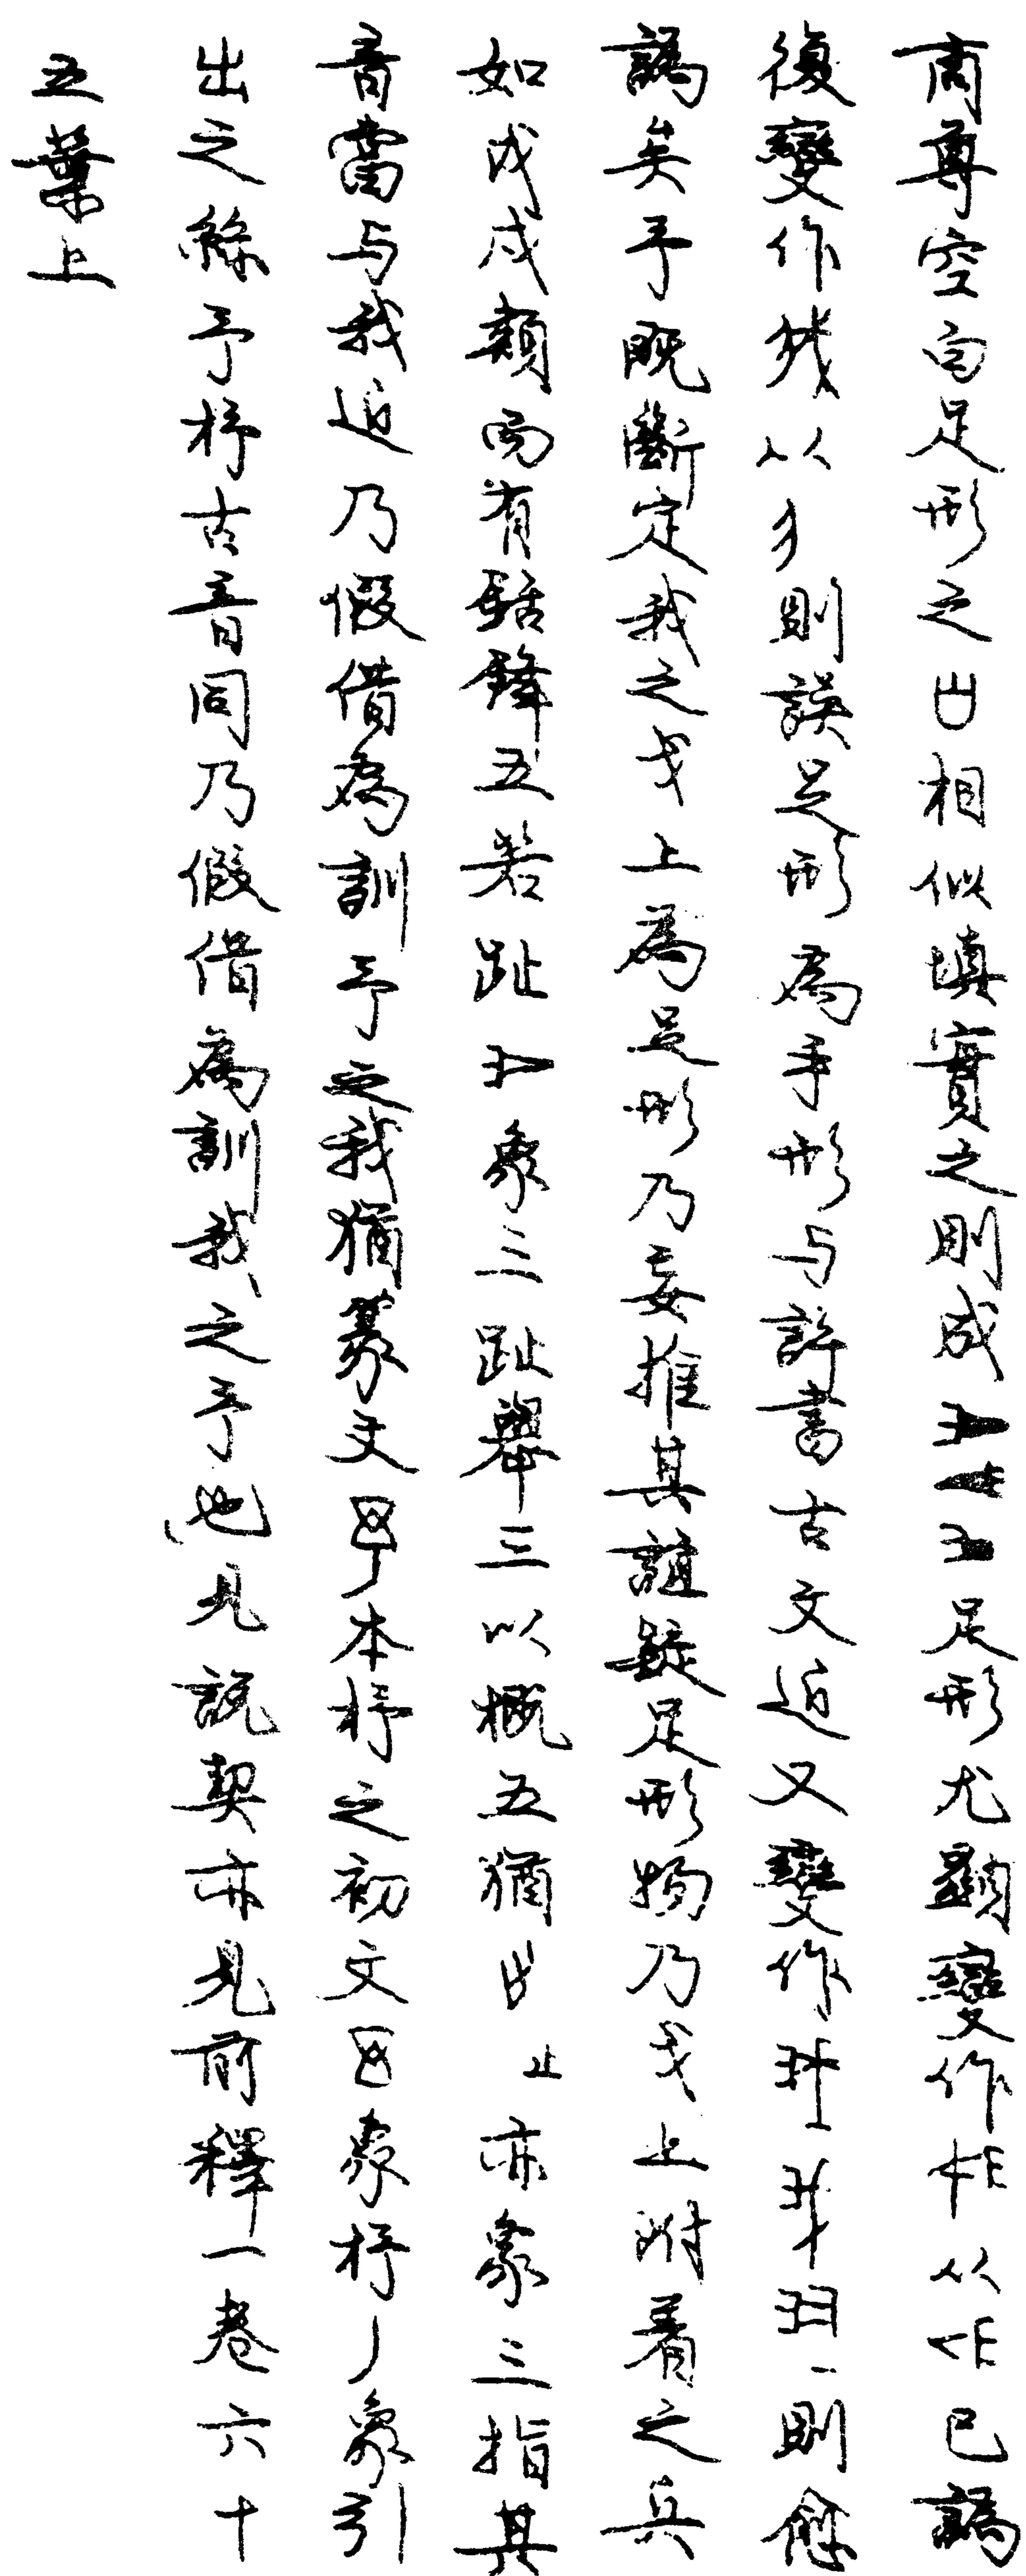 商尊空白足形之相似填實之則成足形尤顯變作从已譌
復變作以則誤足形為手形与許書古文近又變作則愈
譌矣予既斷定我之戈上為足形乃妄推其誼疑足形物乃戈上附着之兵
如戉戍類而有鋸鋒五若趾象三趾舉三以概五猶止亦象三指其
音當与我近乃假借為訓予之我猶篆文本杼之初文象杼丿象引
出之絲予杼古音同乃假借為訓我之予也見説契亦見前釋一卷六十
五葉上